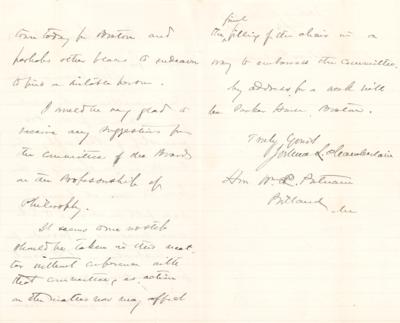 town today for Boston and
perhaps other places to endeavor
to find a suitable person.
I would be very glad to
receive any suggestions from
the committee of the Boards
on the Professorship of
Philosophy.
It seems to me no step
should be taken in this mat-
ter without conference with
that committee, as action
on other matters now may affect
final
the filling of the chair in a
way to embarrass the committee.
My address for a week will
be Parker House, Boston.
Truly yours
Joshua L. Chamberlain
Hon Wm. L. Putnam
Portland
Me